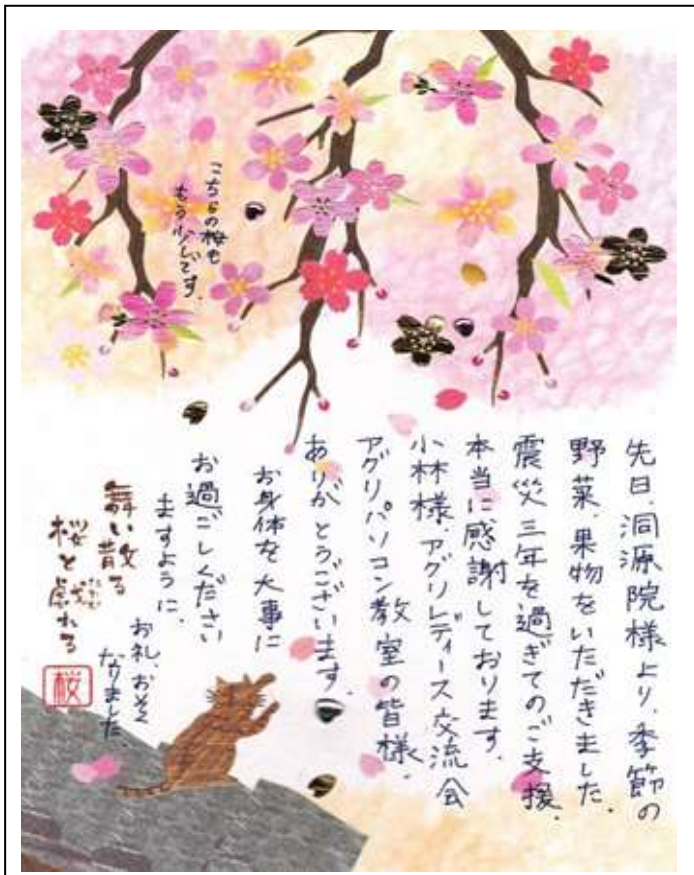 こちらの桜も
もう少しです。
先日、洞源院様より、季節の
野菜、果物をいただきました。
震災三年を過ぎてのご支援、
本当に感謝しております。
小林様、アグリレディース交流会
アグリパソコン教室の皆様、
ありがとうございます。
お身体を大事に
お過ごしください
ますように、
お礼、おそく
なりました、
舞い散る
桜と戯れる
たわむ
桜